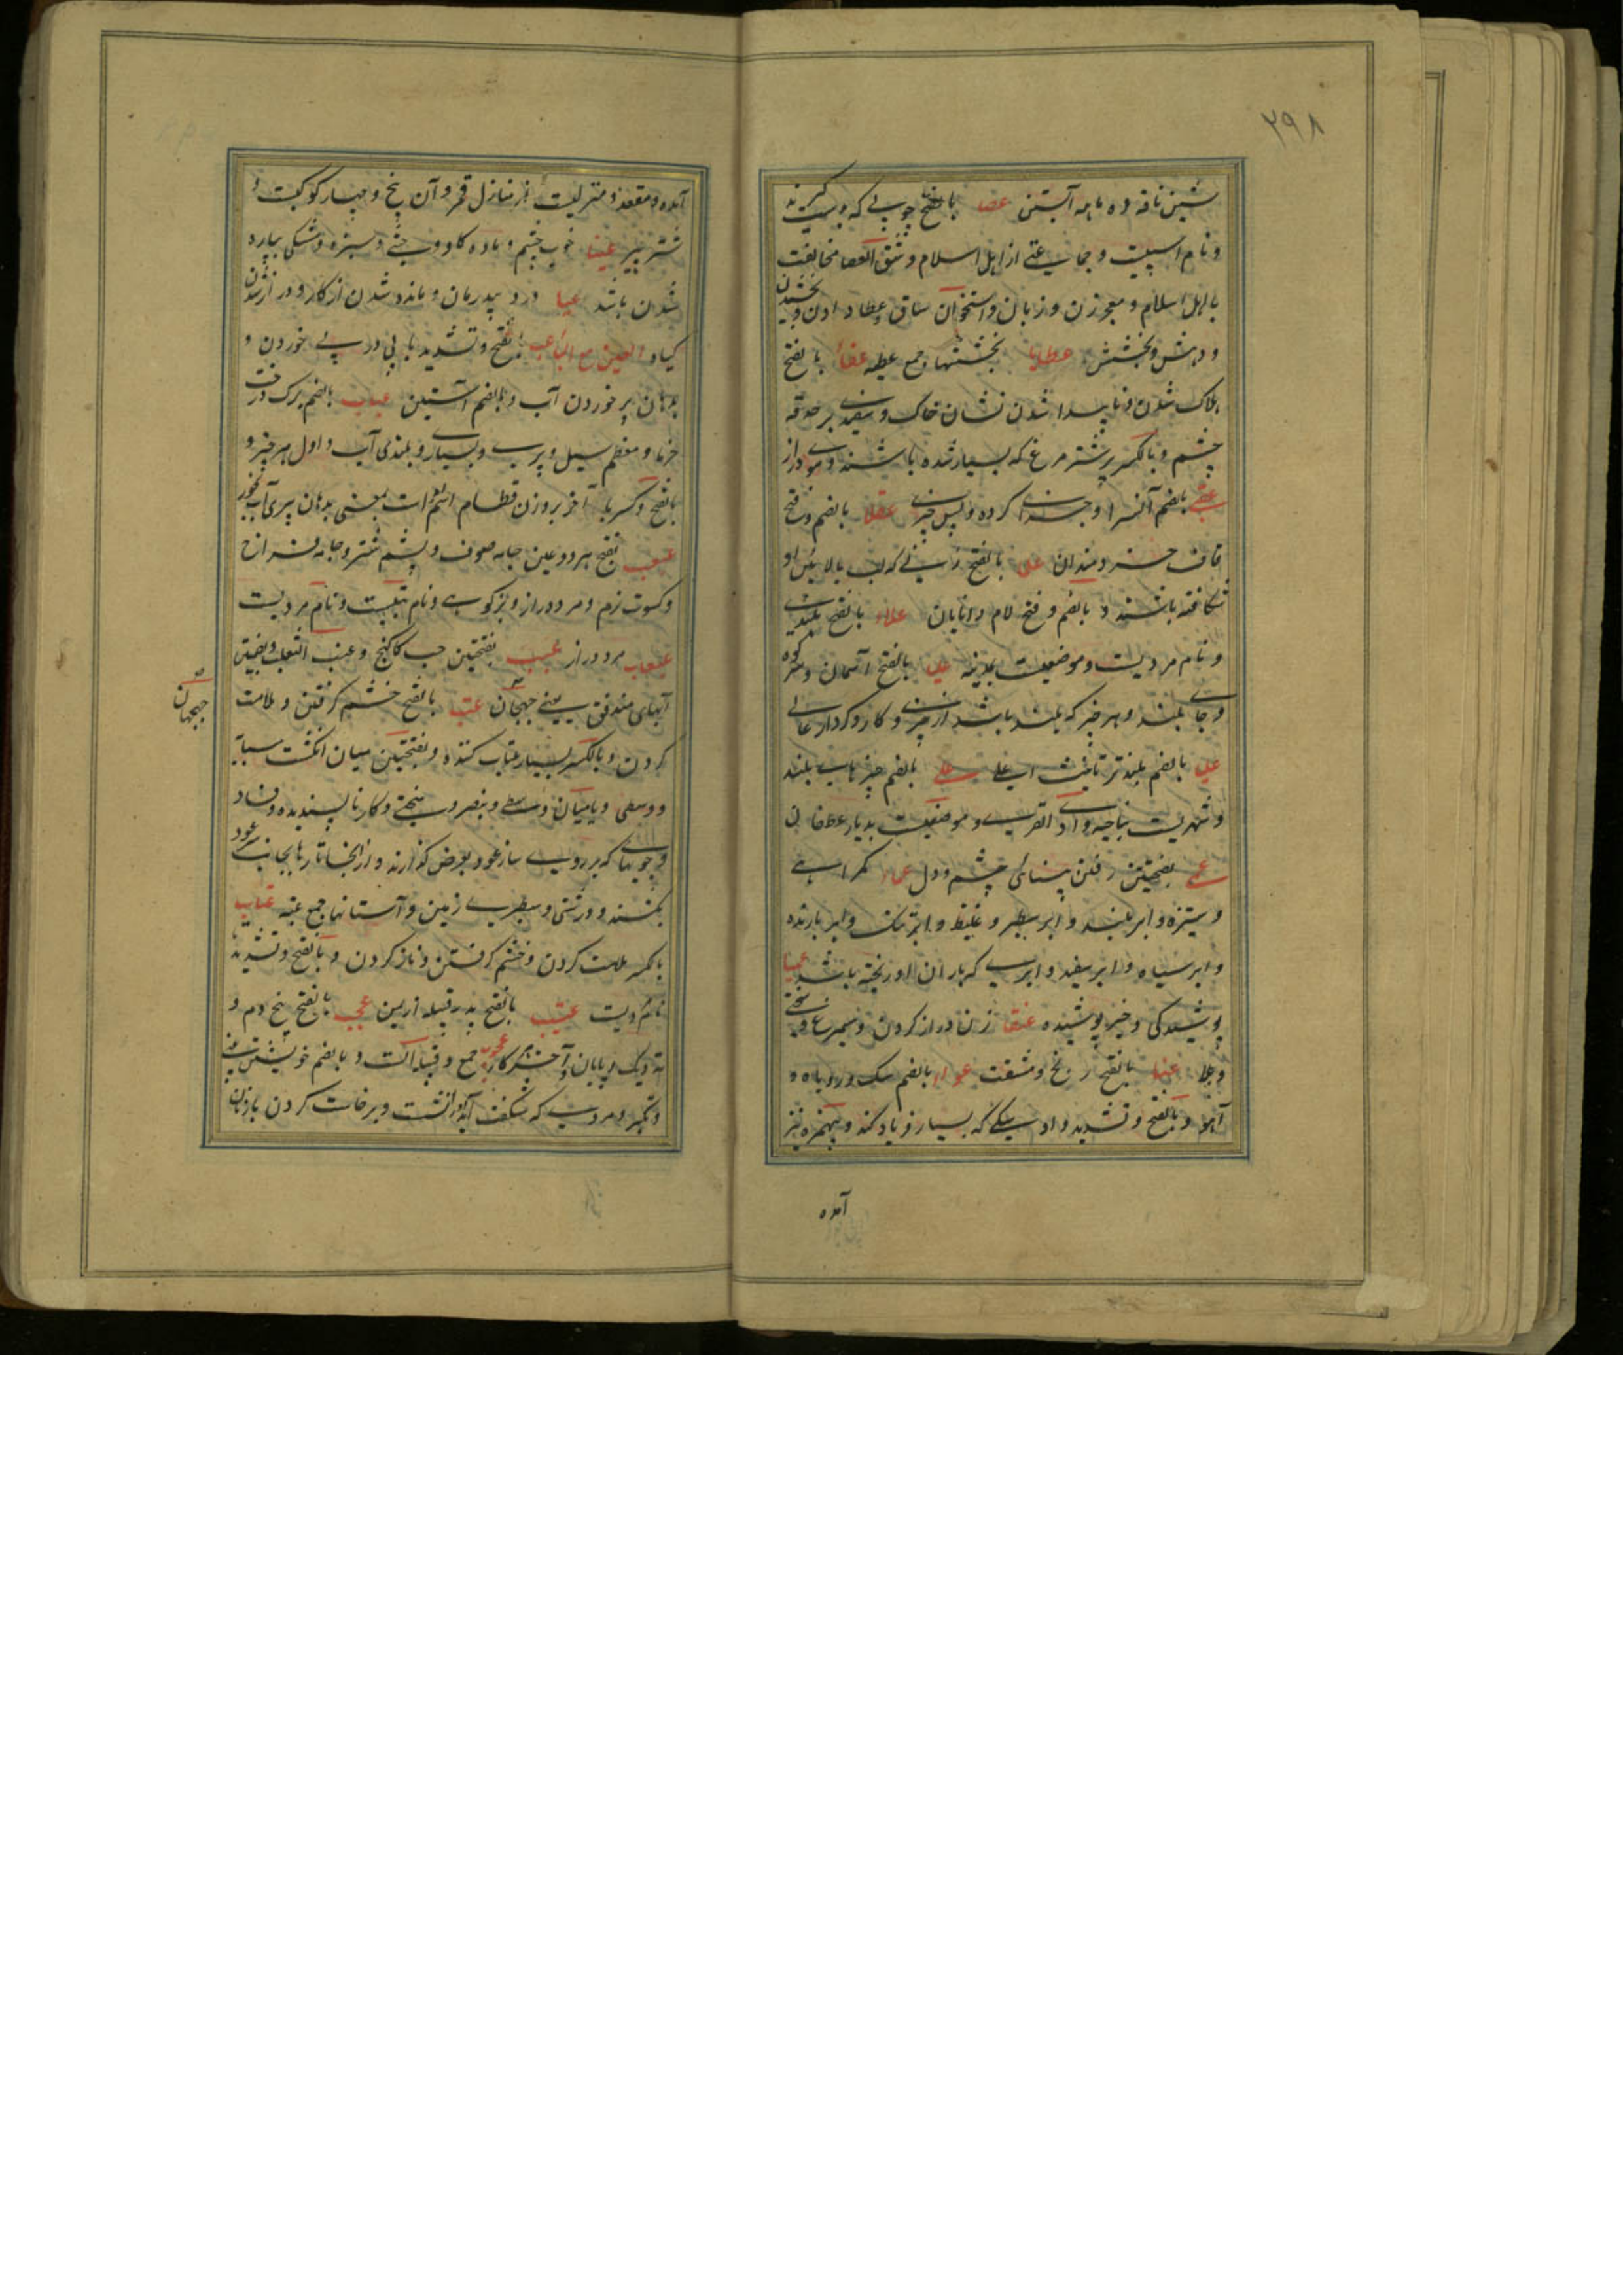 ۲۹۸
شین ناقه ده ماهه آبستن عصا بالفتح چوبی که بدست گیرند
و نام اسپیست و جماعتی از اهل اسلام و شق العصا مخالفت
با اهل اسلام و معجر زن و زبان و استخوان ساق و عطا دادن و بخشیدن
و دهش و بخشش عطایا بخششها جمع عطیه عفا بالفتح
هلاک شدن و ناپیدا شدن نشان خاک و سفیدی بر حدقه
چشم و بالکسر پر شترمرغ که بسیار شده باشند و موی دراز
عقبی بالضم آنسرا و جزای کرده و پس چیزی عقلا بالضم و فتح
قاف خردمندان علیا بالفتح زنی که لب بالایش او
شکافته باشند و بالضم و فتح لام دانایان علاء بالفتح بلندی
و نام مردیست و موضعیست بمدینه علیا بالفتح آسمان و سر کوه
و جای بلند و هر چیز که بلند باشد از چیزی و کار و کردار عالی
علیا بالضم بلندتر تانیث اعلی علی بالضم چیزهای بلند
و شهریست بناحیه وادی القری و موضعیست بدیار عطفان
عمی بفتحتین رفتن بینائی چشم و دل عماء گمراهی
و ستیزه و ابر بلند و ابر سطبر و غلیظ و ابر تنک و ابر بارنده
و ابر سیاه و ابر سفید و ابری که باران او ریخته باشد عمیا
پوشیدگی و چیز پوشیده عنقا زن دراز گردن و سیمرغ و سختی
و بلا عنا بالفتح رنج و مشقت عوا بالضم سگ و روباه و
آهو و بالفتح و تشدید واو سگی که بسیار فریاد کند و بهمزه نیز
آمده
آمده و مقعد و منزلیست از منازل قمر و آن پنج و چهار کوکبست و
شتر پیر عینا خوب چشم و ماده گاو وحشی و سبزه و مشکی بپاره
شدن باشد عیا درد بیدرمان و مانده شدن از کار و دراز شدن
گیاه العین مع الباء عب بالفتح و تشدید با پی در پی خوردن و
بدهان پر خوردن آب و بالضم آستین عباب بالضم برگ درخت
خرما و معظم سیل و پری و بسیار و بلندی آب و اول هر چیز و
بالفتح و کسر با آخر بروزن قطام اسم فعل است بمعنی بدهان پری آب بخور
عبعب بفتح هر دو عین جامه صوف و پشم شتر و جامه فراخ
و کسوت نرم و مرد دراز و بزکوهی و نام بتیست و نام مردیست
عبعاب مرد دراز عبب بفتحتین حب کاکنج و عنب الثعلب و بضمتین
آبهای مندفق یعنی جهجان عتب بالفتح خشم گرفتن و ملامت
جهجهان
کردن و بالکسر بسیار عتاب کننده و بفتحتین میان انگشت سبابه
و وسطی و یا میان وسطی و بنصر و سختی و کار ناپسندیده و فساد
و چوبهای که بر روی ساز عود بعرض گذارند و از آنجا تارها بجانب سر عود
بکشند و درشتی و سطبری زمین و آستانها جمع عتبه عتاب
بالکسر ملامت کردن و خشم گرفتن و ناز کردن و بالفتح و تشدید تا
نام مردیست عتیب بالفتح پدر قبیله از یمن عجب بالفتح بیخ دم و
ته ریگ و پایان و آخر هر کار عجوب جمع و قبیله است و بالضم خویشتن بینی
و تکبر و مردی که شگفت آید او را نشست و برخاست کردن با زنان